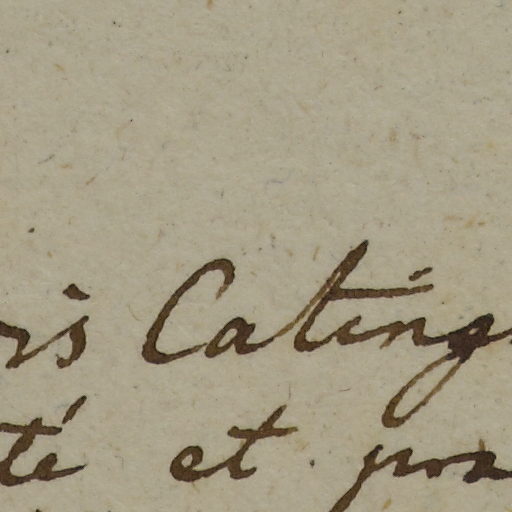 ris Cating
té et pra